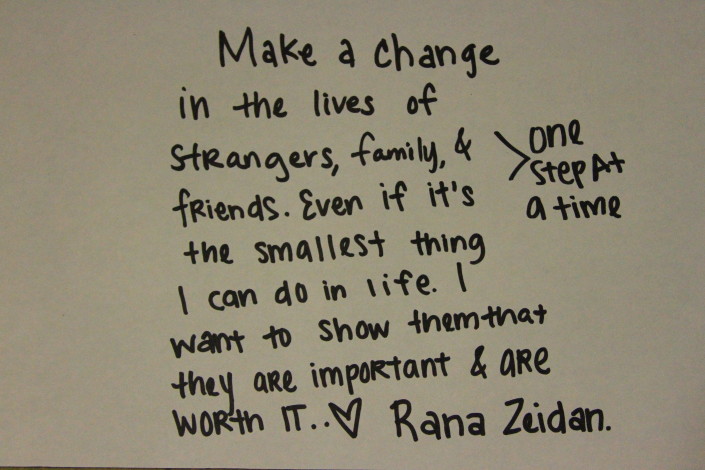 Make a change
in the lives of
strangers, family, &
friends. Even if it's
the smallest thing
I can do in life. I
want to show them that
they are important & are
worth it..♡ Rana Zeidan.
> one
step at
a time